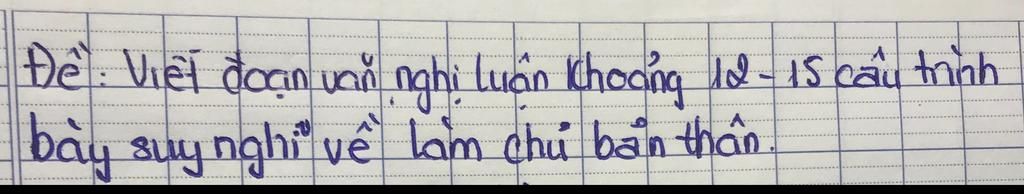 Đề: Viết đoạn văn nghị luận khoảng 12-15 câu trình
bày suy nghĩ về làm chủ bản thân.